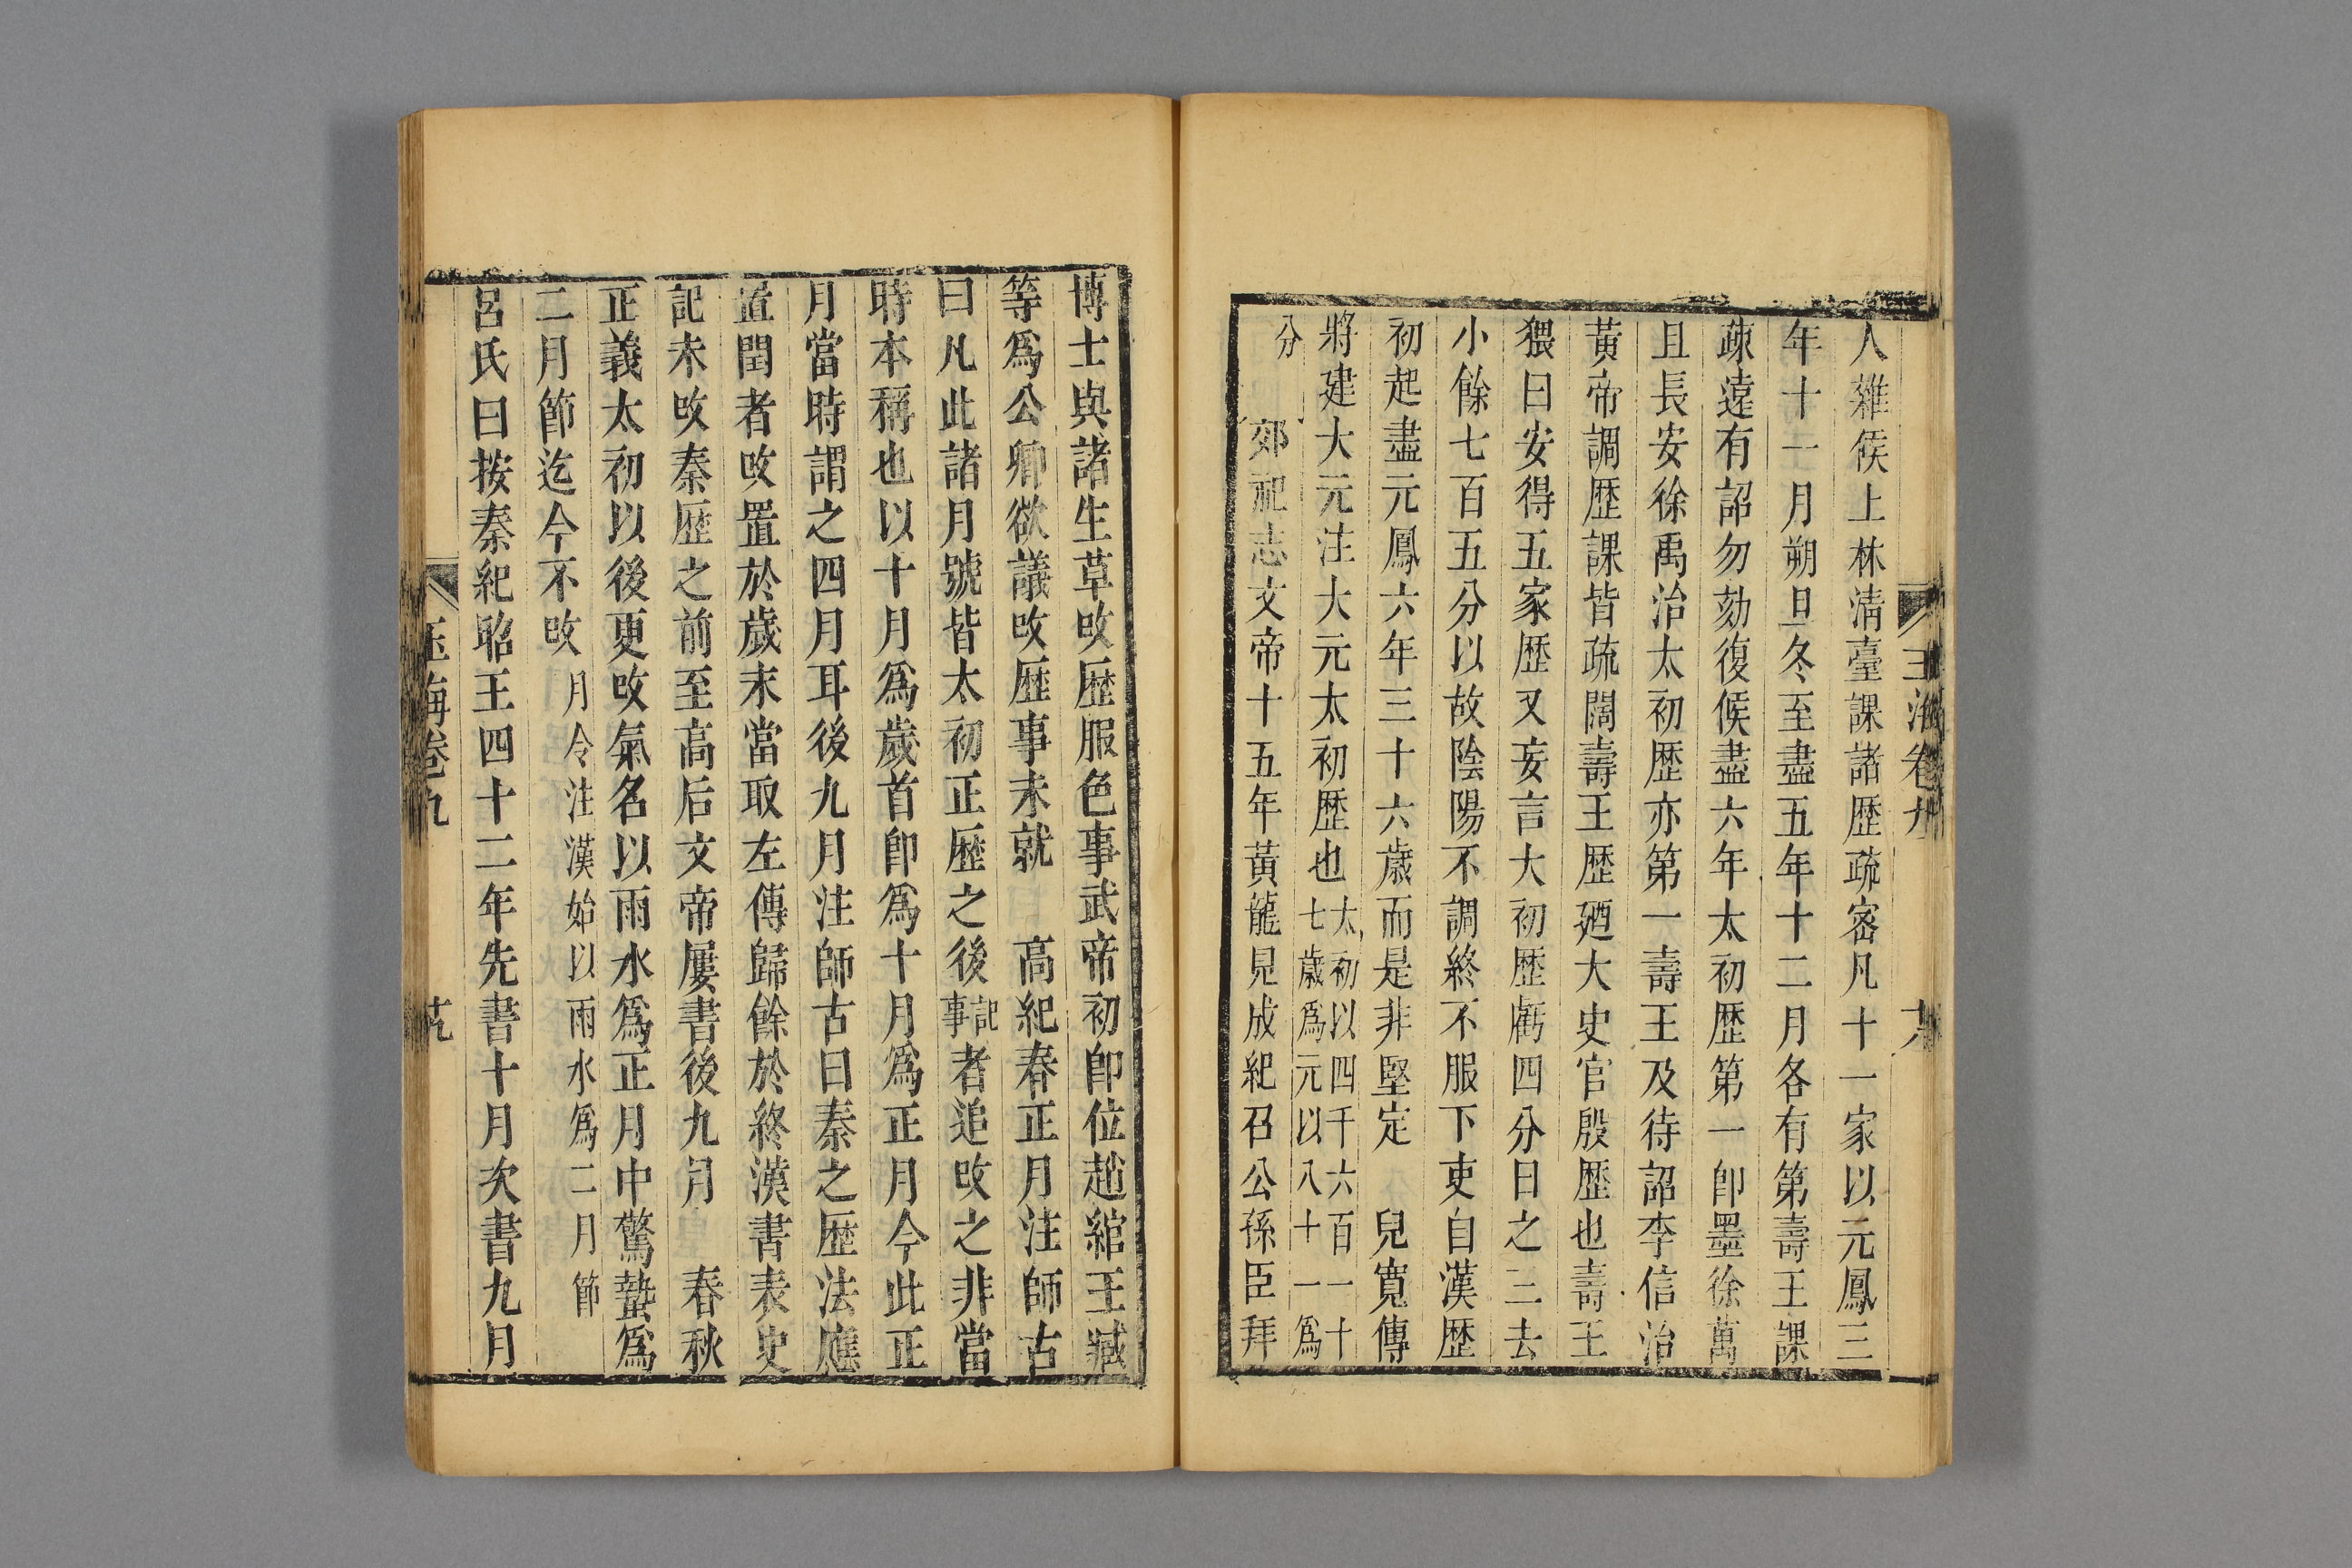 人雜候上林清臺課諸歷疏密凡十一家以元鳳三
年十一月朔旦冬至盡五年十二月各有第壽王課
疎遠有詔勿劾復候盡六年太初歷第一卽墨徐萬
且長安徐禹治太初歷亦第一壽王及待詔李信治
黃帝調歷課皆疏闊壽王歷廼大史官殷歷也壽王
猥曰安得五家歷又妄言大初歷虧四分日之三去
小餘七百五分以故陰陽不調終不服下吏自漢歷
初起盡元鳳六年三十六歲而是非堅定 兒寬傳
將建大元注大元太初歷也太初以四千六百一十七歲爲元以八十一爲
分 郊祀志文帝十五年黃龍見成紀召公孫臣拜
博士與諸生草攺歷服色事武帝初卽位趙綰王臧
等爲公卿欲議攺歷事未就 高紀春正月注師古
曰凡此諸月號皆太初正歷之後記事者追攺之非當
時本稱也以十月爲歲首卽爲十月爲正月今此正
月當時謂之四月耳後九月注師古曰秦之歷法應
置閏者攺置於歲末當取左傳歸餘於終漢書表史
記未攺秦歷之前至高后文帝屢書後九月 春秋
正義太初以後更攺氣名以雨水爲正月中驚蟄爲
二月節迄今不攺月令注漢始以雨水爲二月節
呂氏曰按秦紀昭王四十二年先書十月次書九月
玉海卷九